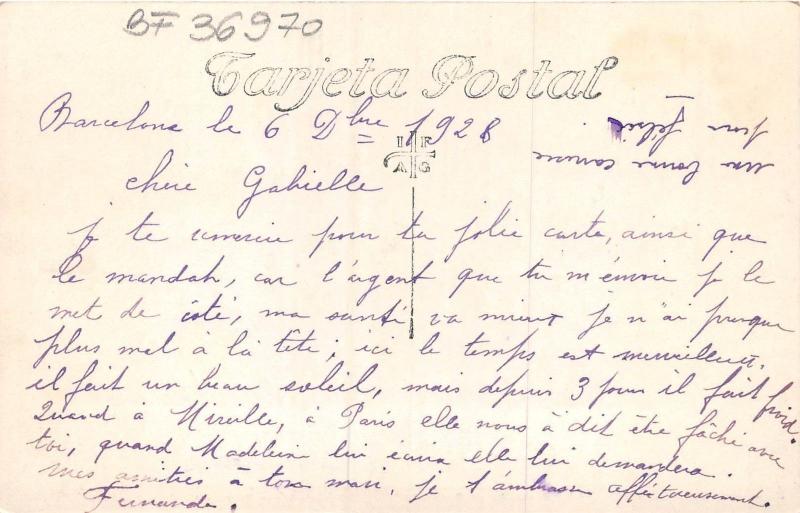 BF 36970
Tarjeta Postal
Barcelone le 6 Dbre 1928
I F
A G
une bonne
pour
chère Gabielle
je te remercie pour ta jolie carte, ainsi que
le mandah, car l'argent que tu m'envoie je le
met de coté, ma santé va mieux je n'ai presque
plus mal à la tête; ici le temps est merveilleux,
il fait un beau soleil, mais depuis 3 jours il fait froid.
Quand à Mireille, à Paris elle nous à dit être fâché avec
toi, quand Madelein lui écrira elle lui demandera.
mes amitiés à ton mari, je t'embrasse affectueusement.
Fernande.